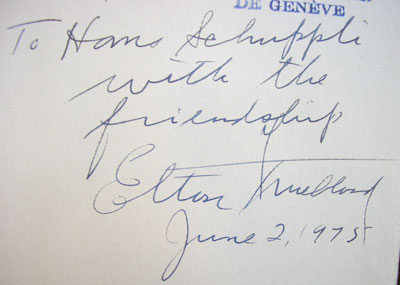 DE GENÈVE
To Hans Schuppli
with the
friendship
Elton Trueblood
June 2, 1975